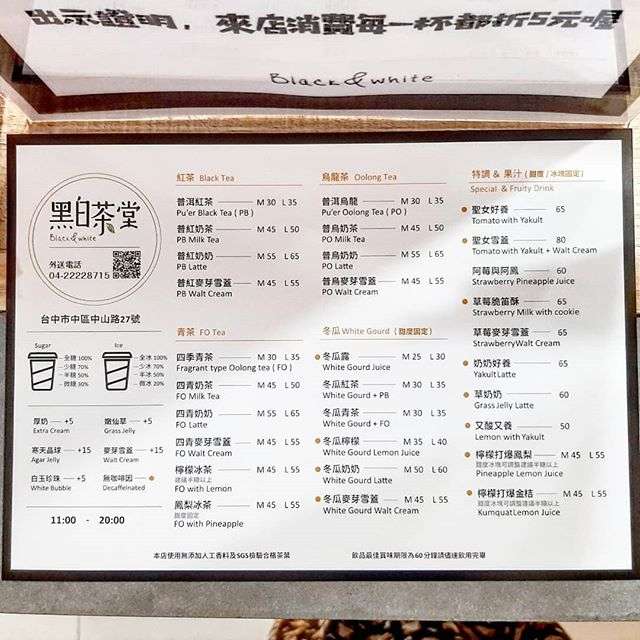 出示證明，來店消費每一杯都折5元喔
Black & white
黑白茶堂
Black & white
外送電話
04-22228715
台中市中區中山路27號
Sugar
全糖 100%
少糖 70%
半糖 50%
微糖 30%
Ice
全冰 100%
少冰 70%
半冰 50%
微冰 20%
厚奶 +5
Extra Cream
嫩仙草 +5
Grass Jelly
寒天晶球 +15
Agar Jelly
麥芽雪蓋 +15
Walt Cream
白玉珍珠 +5
White Bubble
無咖啡因
Decaffeinated
11:00 - 20:00
紅茶 Black Tea
普洱紅茶 M 30 L 35
Pu'er Black Tea ( PB )
普紅奶茶 M 45 L 50
PB Milk Tea
普紅奶奶 M 55 L 65
PB Latte
普紅麥芽雪蓋 M 45 L 55
PB Walt Cream
青茶 FO Tea
四季青茶 M 30 L 35
Fragrant type Oolong tea ( FO )
四青奶茶 M 45 L 50
FO Milk Tea
四青奶奶 M 55 L 65
FO Latte
四青麥芽雪蓋 M 45 L 55
FO Walt Cream
檸檬冰茶 M 45 L 55
建議半糖以上
FO with Lemon
鳳梨冰茶 M 45 L 55
甜度固定
FO with Pineapple
烏龍茶 Oolong Tea
普洱烏龍 M 30 L 35
Pu'er Oolong Tea ( PO )
普烏奶茶 M 45 L 50
PO Milk Tea
普烏奶奶 M 55 L 65
PO Latte
普烏麥芽雪蓋 M 45 L 55
PO Walt Cream
冬瓜 White Gourd ( 甜度固定 )
冬瓜露 M 25 L 30
White Gourd Juice
冬瓜紅茶 M 30 L 35
White Gourd + PB
冬瓜青茶 M 30 L 35
White Gourd + FO
冬瓜檸檬 M 35 L 40
White Gourd Lemon Juice
冬瓜奶奶 M 50 L 60
White Gourd Latte
冬瓜麥芽雪蓋 M 45 L 55
White Gourd Walt Cream
特調 & 果汁 ( 甜度 / 冰塊固定 )
Special & Fruity Drink
聖女好養 65
Tomato with Yakult
聖女雪蓋 80
Tomato with Yakult + Walt Cream
阿莓與阿鳳 60
Strawberry Pineapple Juice
草莓脆笛酥 65
Strawberry Milk with cookie
草莓麥芽雪蓋 65
Strawberry Walt Cream
奶奶好養 65
Yakult Latte
草奶奶 60
Grass Jelly Latte
又酸又養 50
Lemon with Yakult
檸檬打爆鳳梨 M 45 L 55
甜度冰塊可調整建議半糖以上
Pineapple Lemon Juice
檸檬打爆金桔 M 45 L 55
甜度冰塊可調整建議半糖以上
Kumquat Lemon Juice
本店使用無添加人工香料及SGS檢驗合格茶葉
飲品最佳賞味期限為60分鐘請儘速飲用完畢